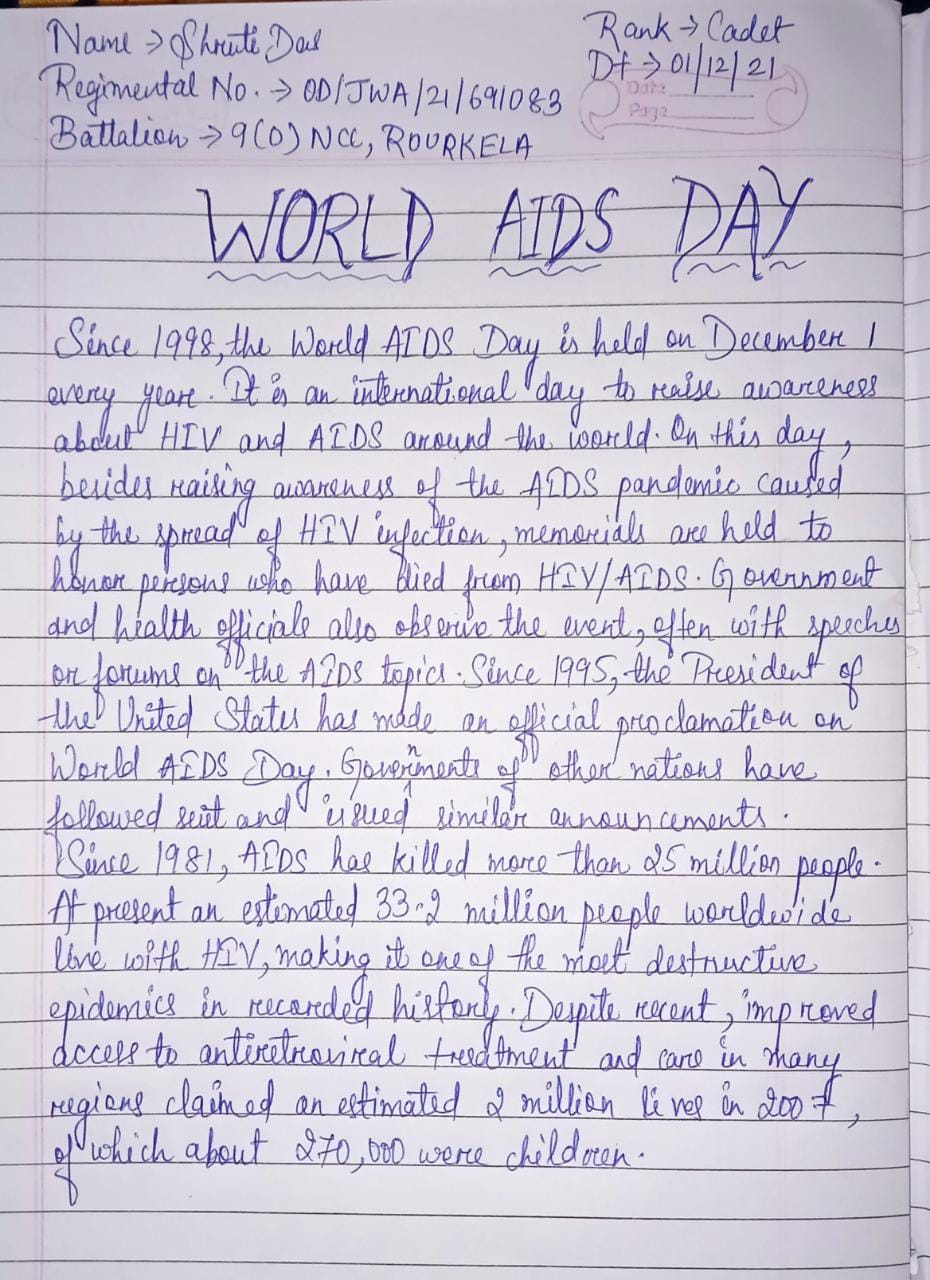 Name → Shruti Das
Rank → Cadet
Regimental No. → OD/JWA/21/691083
Dt → 01/12/21
Date
Page
Battalion → 9(O) NCC, ROURKELA
WORLD AIDS DAY
Since 1998, the World AIDS Day is held on December 1
every year. It is an international day to raise awareness
about HIV and AIDS around the world. On this day,
besides raising awareness of the AIDS pandemic caused
by the spread of HIV infection, memorials are held to
honor persons who have died from HIV/AIDS. Government
and health officials also observe the event, often with speeches
or forums on the AIDS topics. Since 1995, the President of
the United States has made an official proclamation on
World AIDS Day. Governments of other nations have
followed suit and issued similar announcements.
Since 1981, AIDS has killed more than 25 million people.
At present an estimated 33.2 million people worldwide
live with HIV, making it one of the most destructive
epidemics in recorded history. Despite recent, improved
access to antiretroviral treatment and care in many
regions claimed an estimated 2 million lives in 2007,
of which about 270,000 were children.